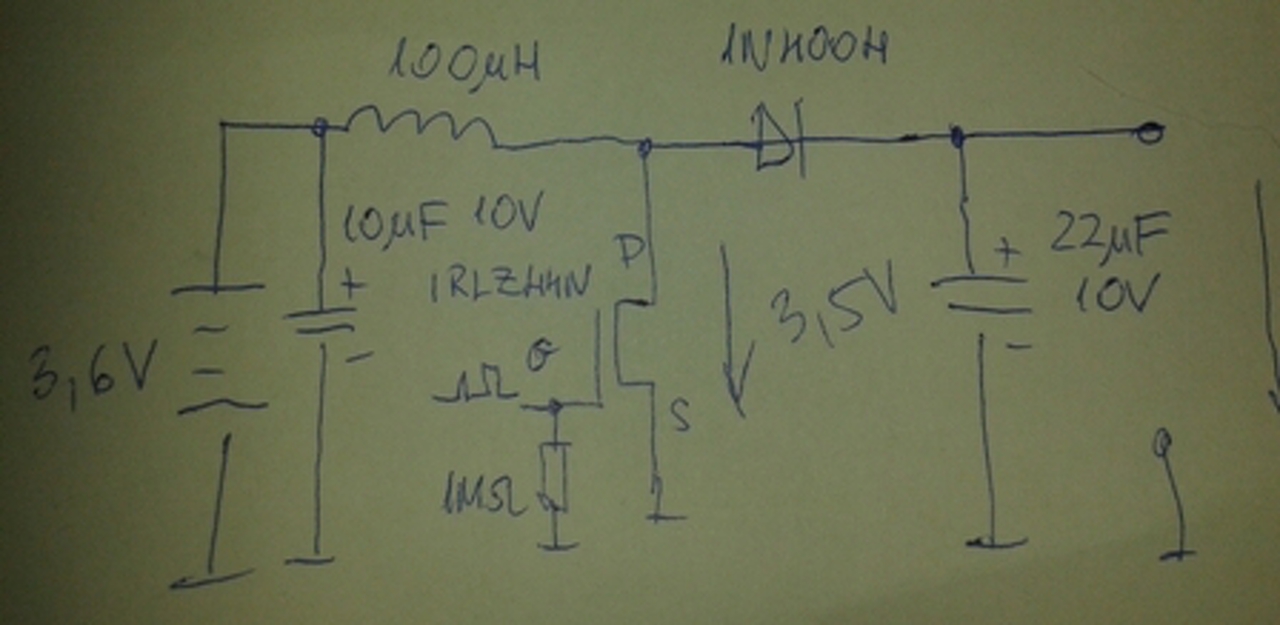 100µH
1N4004
10µF 10V
+
-
IRLZ44N
D
G
S
3,6V
1MΩ
3,5V
+
-
22µF
10V